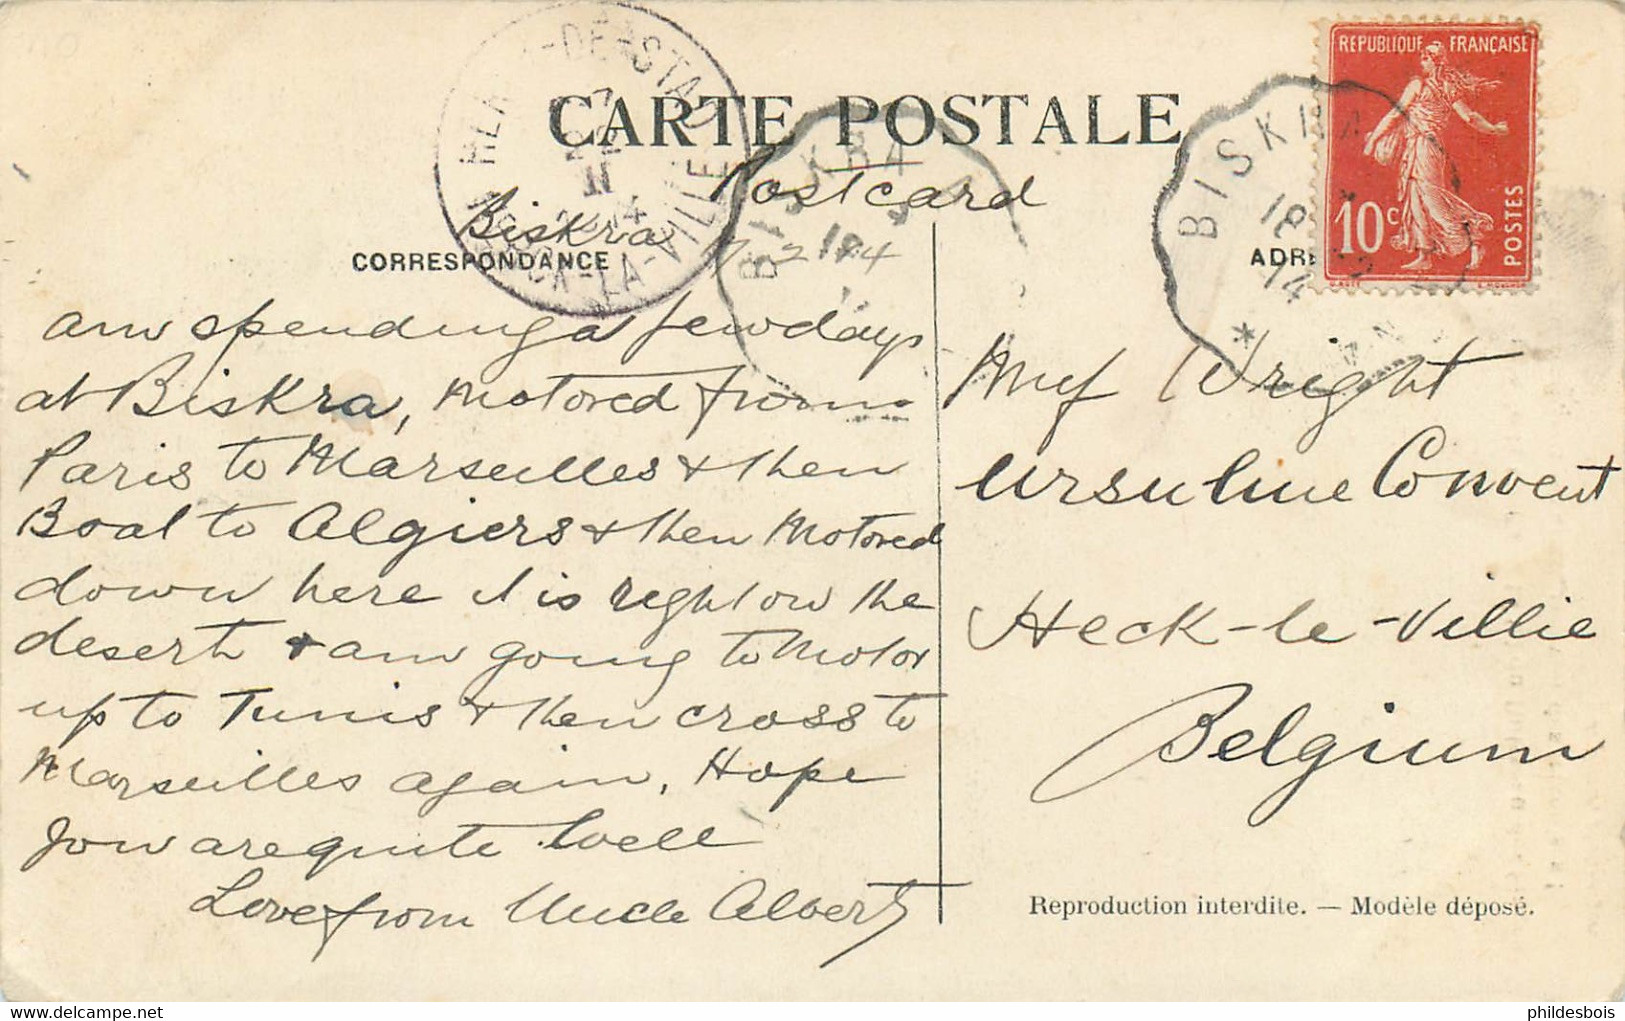 CARTE POSTALE
Postcard
Biskra 17 2 14
CORRESPONDANCE
am spending a few days
at Biskra, Motored from
Paris to Marseilles & then
Boat to Algiers & then Motored
down here it is right on the
desert & am going to Motor
up to Tunis & then cross to
Marseilles again. Hope
you are quite well
Love from Uncle Albert
REPUBLIQUE FRANÇAISE
10c
POSTES
BISKRA
18
14
BISKRA
LA-VILLE
ADR
Wright
Ursuline Convent
Heck-le-Villie
Belgium
Reproduction interdite. — Modèle déposé.
phildesbois